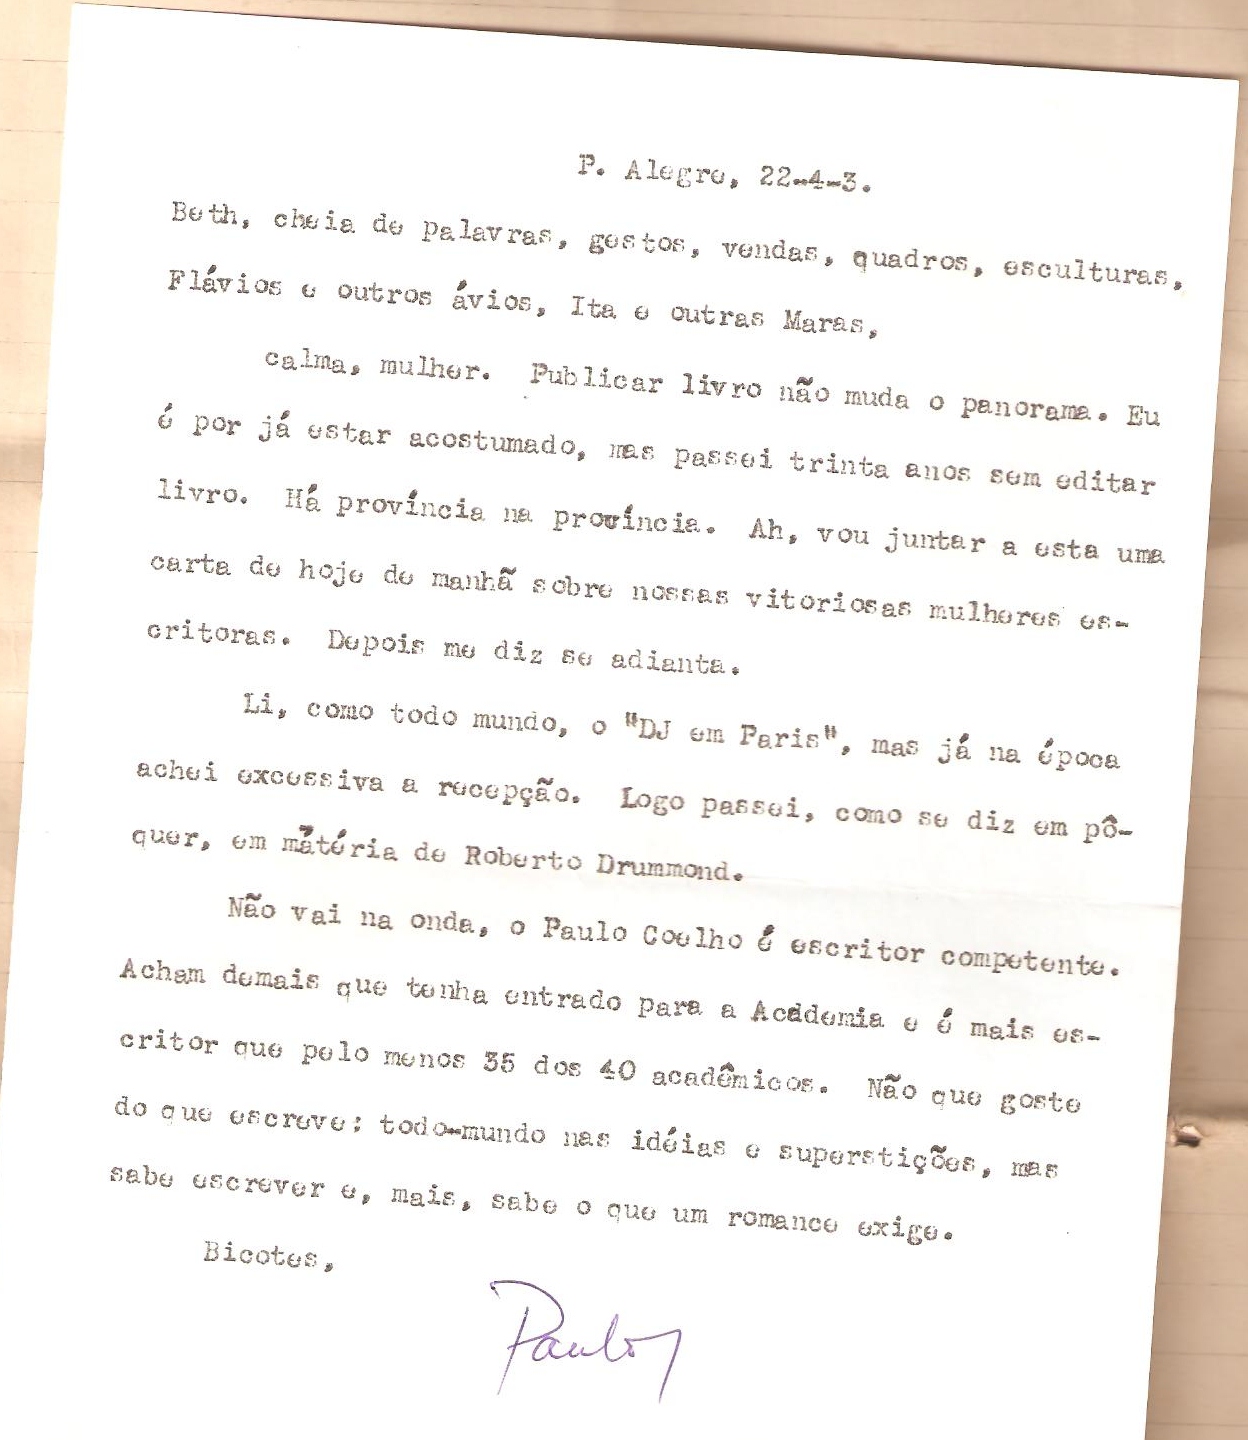 P. Alegre, 22-4-3.
Beth, cheia de palavras, gestos, vendas, quadros, esculturas,
Flávios e outros ávios, Ita e outras Maras,
calma, mulher. Publicar livro não muda o panorama. Eu
é por já estar acostumado, mas passei trinta anos sem editar
livro. Há província na província. Ah, vou juntar a esta uma
carta de hoje de manhã sobre nossas vitoriosas mulheres es-
critoras. Depois me diz se adianta.
Li, como todo mundo, o "DJ em Paris", mas já na época
achei excessiva a recepção. Logo passei, como se diz em pô-
quer, em matéria de Roberto Drummond.
Não vai na onda, o Paulo Coelho é escritor competente.
Acham demais que tenha entrado para a Academia e é mais es-
critor que pelo menos 35 dos 40 acadêmicos. Não que goste
do que escreve: todo-mundo nas idéias e superstições, mas
sabe escrever e, mais, sabe o que um romance exige.
Bicotes,
Paulo